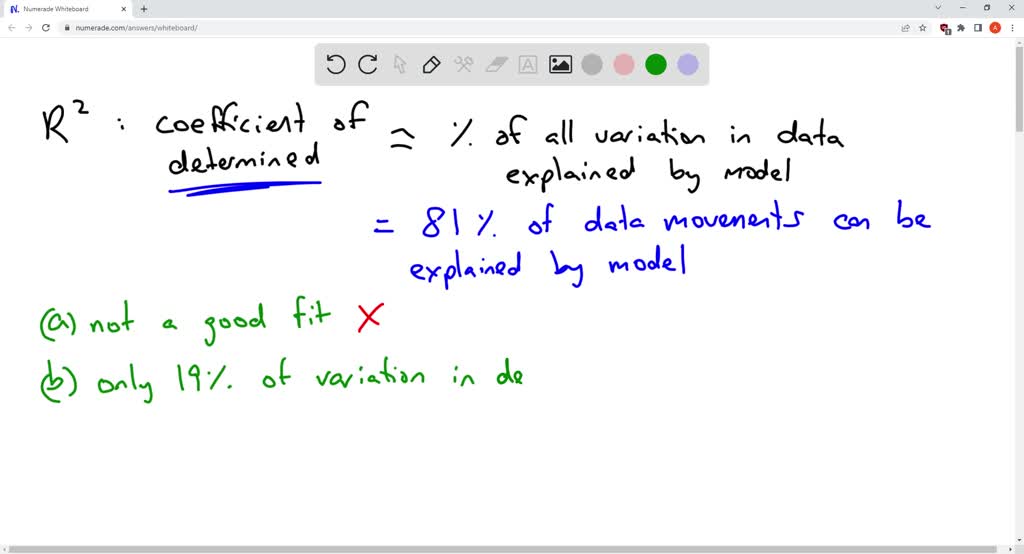 Numerade Whiteboard
numerade.com/answers/whiteboard/
R² : coefficient of determined ≈ % of all variation in data explained by model
= 81% of data movements can be explained by model
(a) not a good fit X
(b) only 19% of variation in de